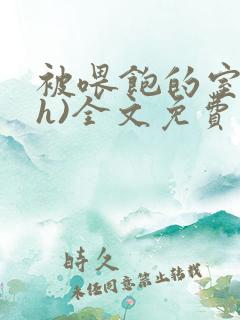 被喂飽的室
h)全文免費
時久
未经同意禁止转载